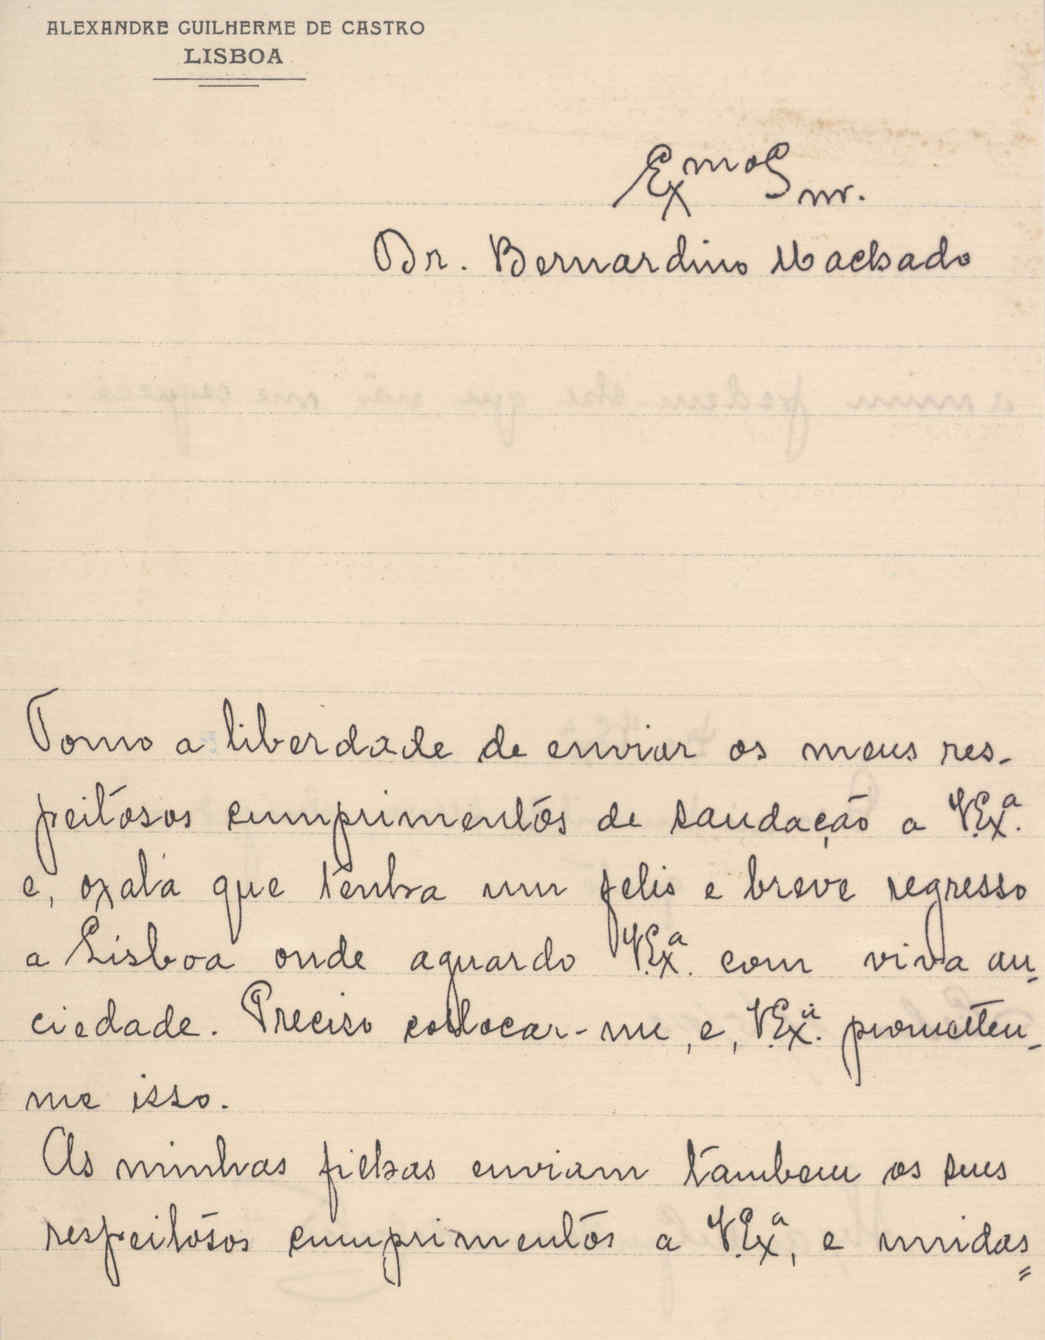 ALEXANDRE GUILHERME DE CASTRO
LISBOA
Exmo Snr.
Dr. Bernardino Machado
Tomo a liberdade de enviar os meus res-
peitósos cumprimentós de saudação a V.Exª.
e, oxalá que tenha um felis e breve regresso
a Lisboa onde aguardo V.Exª. com viva an-
ciedade. Preciso collocar-me, e, V.Exª. prometteu-
me isso.
As minhas filhas enviam tambem os seus
respeitósos cumprimentós a V.Exª, e unidas